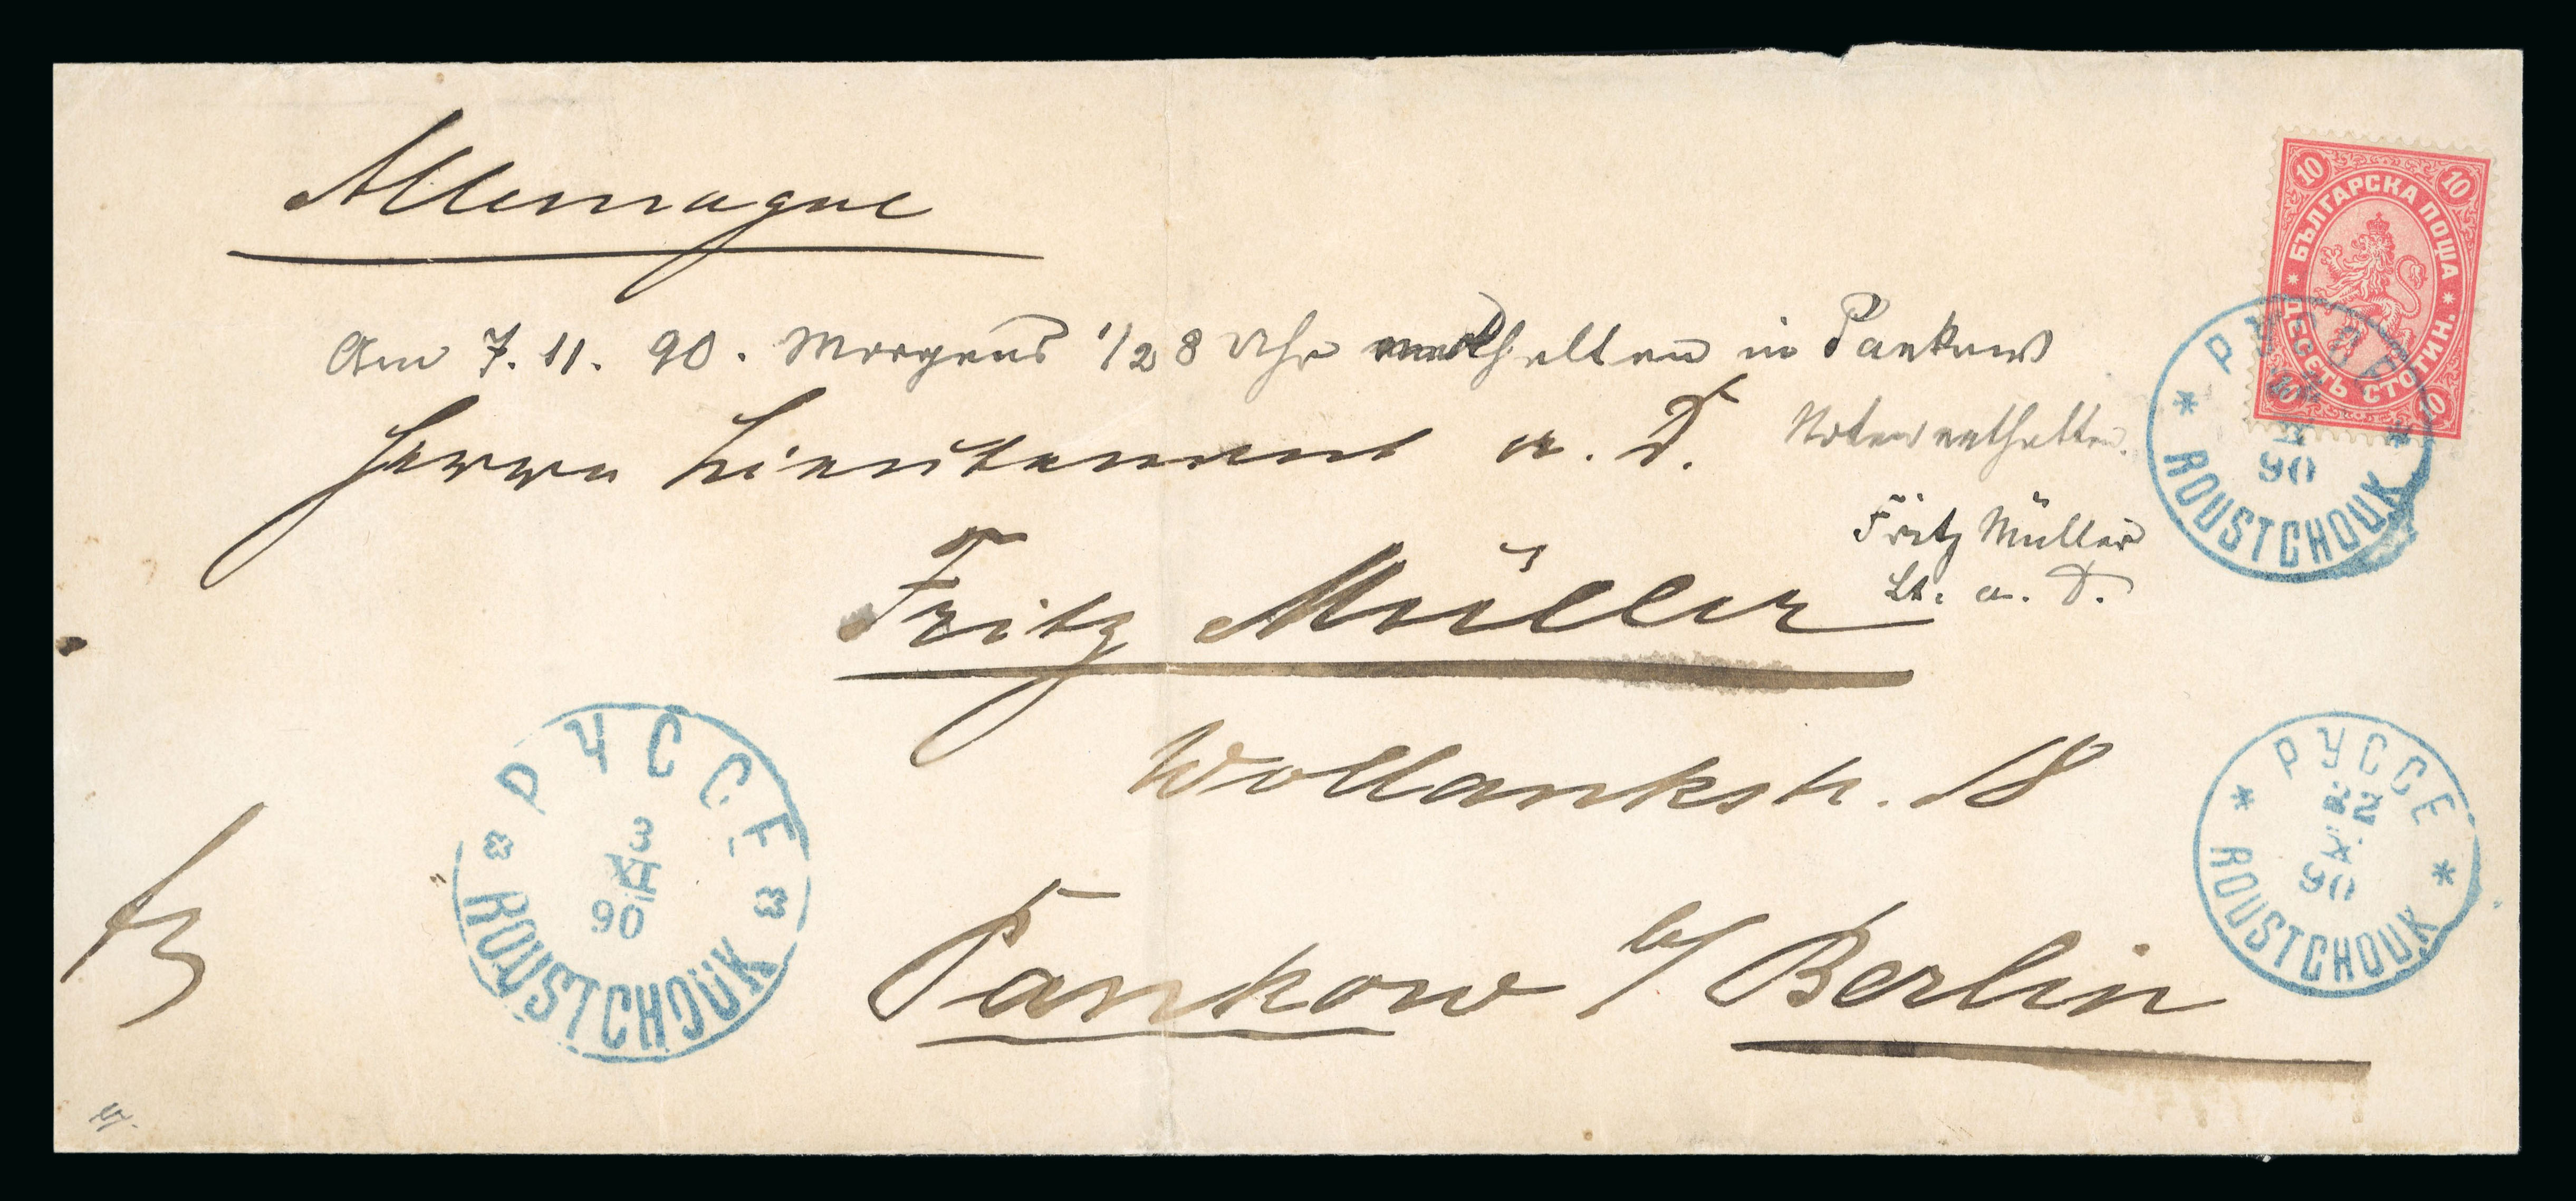 Allemagne
10 10
БЪЛГАРСКА ПОЩА
ДЕСЕТЬ СТОТИН.
10 10
Am 7.11.90. Morgens 1/2 8 Uhr erhalten in Pankow
Herrn Lieutenant a. D.
Noten enthalten.
РУССЕ
90
ROUSTCHOUK
Fritz Müller
Lt. a. D.
Fritz Müller
Wollankstr. 18
РУССЕ
3
XI
90
ROUSTCHOUK
РУССЕ
22
X
90
ROUSTCHOUK
Pankow b/ Berlin